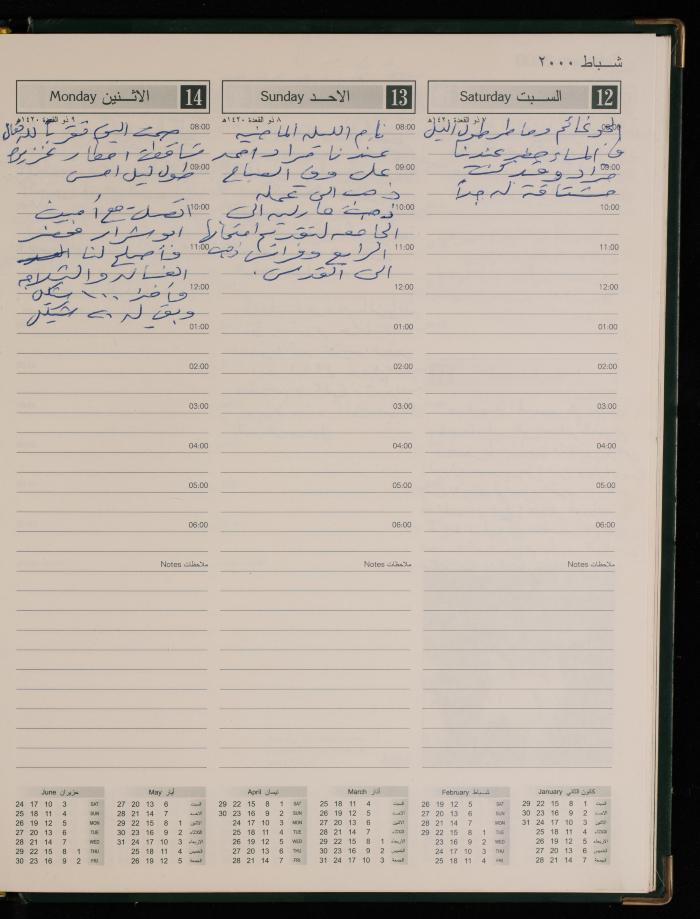 شـــباط ٢٠٠٠
12 السـبت Saturday
٧ ذو القعدة ١٤٢٠هـ
الجو غائم وماطر طول الليل
08:00
في المساء حضر عندنا
09:00
مراد وقد كنت
مشتاقة له جداً
10:00
11:00
12:00
01:00
02:00
03:00
04:00
05:00
06:00
ملاحظات Notes
13 الاحـد Sunday
٨ ذو القعدة ١٤٢٠هـ
نام الليله الماضيه
08:00
عندنا مراد احمد
09:00
على وفي الصباح
ذهب الى عمله
10:00
ذهبت ماريه الى
الجامعه لتقديم امتحانها
11:00
الرابع وفراس ذهب
الى القدس.
12:00
01:00
02:00
03:00
04:00
05:00
06:00
ملاحظات Notes
14 الاثـنين Monday
٩ ذو القعدة ١٤٢٠هـ
08:00
تساقطت امطار غزيره
09:00
طول ليل امس
اتصلت مع
10:00
ابو شرار فحضر
فأصلح لنا
11:00
الغساله والثلاجه
12:00
وأخذ ١٠٠ شيكل
وبقي له ٢٠ شيكل
01:00
02:00
03:00
04:00
05:00
06:00
ملاحظات Notes
كانون الثاني January
29 22 15 8 1 السبت
30 23 16 9 2 الاحد
31 24 17 10 3 الاثنين
25 18 11 4 الثلاثاء
26 19 12 5 الاربعاء
27 20 13 6 الخميس
28 21 14 7 الجمعة
شـباط February
26 19 12 5 SAT
27 20 13 6 SUN
28 21 14 7 MON
29 22 15 8 1 TUE
23 16 9 2 WED
24 17 10 3 THU
25 18 11 4 FRI
آذار March
25 18 11 4 السبت
26 19 12 5 الاحد
27 20 13 6 الاثنين
28 21 14 7 الثلاثاء
29 22 15 8 1 الاربعاء
30 23 16 9 2 الخميس
31 24 17 10 3 الجمعة
نيسان April
29 22 15 8 1 SAT
30 23 16 9 2 SUN
24 17 10 3 MON
25 18 11 4 TUE
26 19 12 5 WED
27 20 13 6 THU
28 21 14 7 FRI
أيار May
27 20 13 6 السبت
28 21 14 7 الاحد
29 22 15 8 1 الاثنين
30 23 16 9 2 الثلاثاء
31 24 17 10 3 الاربعاء
25 18 11 4 الخميس
26 19 12 5 الجمعة
حزيران June
24 17 10 3 SAT
25 18 11 4 SUN
26 19 12 5 MON
27 20 13 6 TUE
28 21 14 7 WED
29 22 15 8 1 THU
30 23 16 9 2 FRI